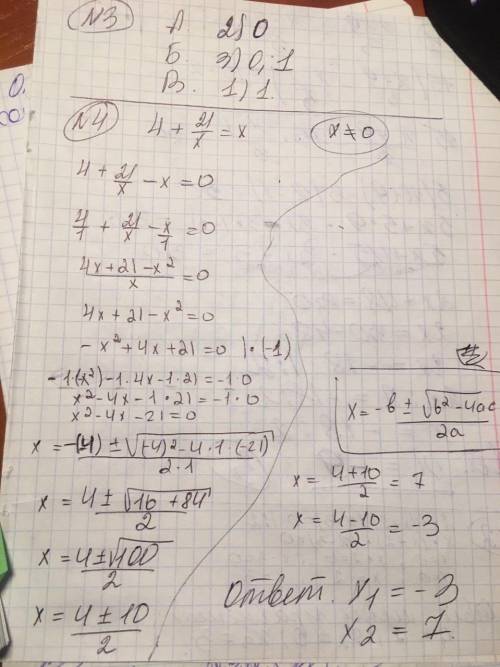 №3 А 2) 0
Б. 3) 0; 1
В. 1) 1.
№4 4 + 21/x = x x ≠ 0
4 + 21/x - x = 0
4/1 + 21/x - x/1 = 0
(4x + 21 - x²)/x = 0
4x + 21 - x² = 0
- x² + 4x + 21 = 0 | · (-1)
-1·(x²) - 1·4x - 1·21 = -1·0
x² - 4x - 1·21 = -1·0
x² - 4x - 21 = 0
x = (-(4) ± √((-4)² - 4·1·(-21)))/(2·1)
x = (4 ± √(16 + 84))/2
x = (4 ± √100)/2
x = (4 ± 10)/2
x = (-b ± √(b² - 4ac))/(2a)
x = (4 + 10)/2 = 7
x = (4 - 10)/2 = -3
Ответ. x₁ = -3
x₂ = 7.